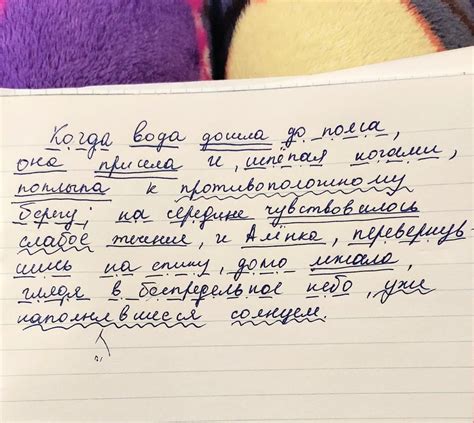 Когда вода дошла до пояса,
она присела и, шлёпая ногами,
поплыла к противоположному
берегу; на середине чувствовалось
слабое течение, и Алёнка, перевернув-
шись на спину, долго лежала,
глядя в беспредельное небо, уже
наполнявшееся солнцем.